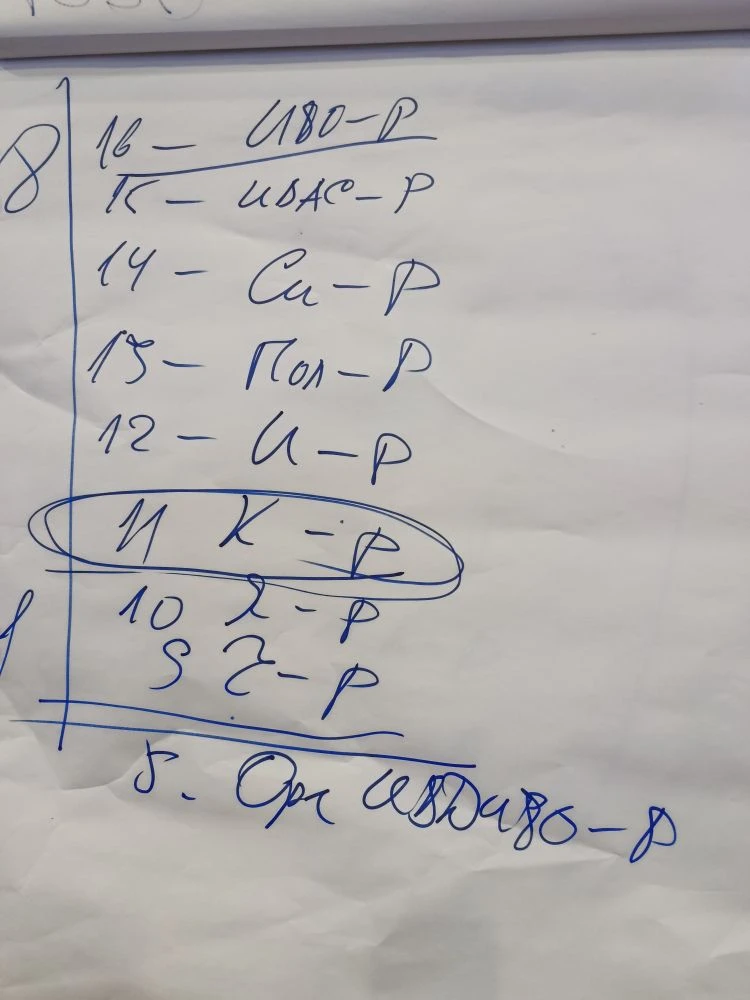 8
16 - ИВО-Р
15 - ИВАС-Р
14 - Си-Р
13 - Пол-Р
12 - И-Р
11 К-Р
10 2-Р
9 Z-Р
5. Орг ИВДИВО-Р